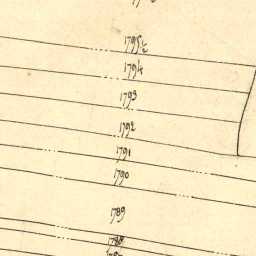 1795½
1794
1793
1792
1791
1790
1789
1788